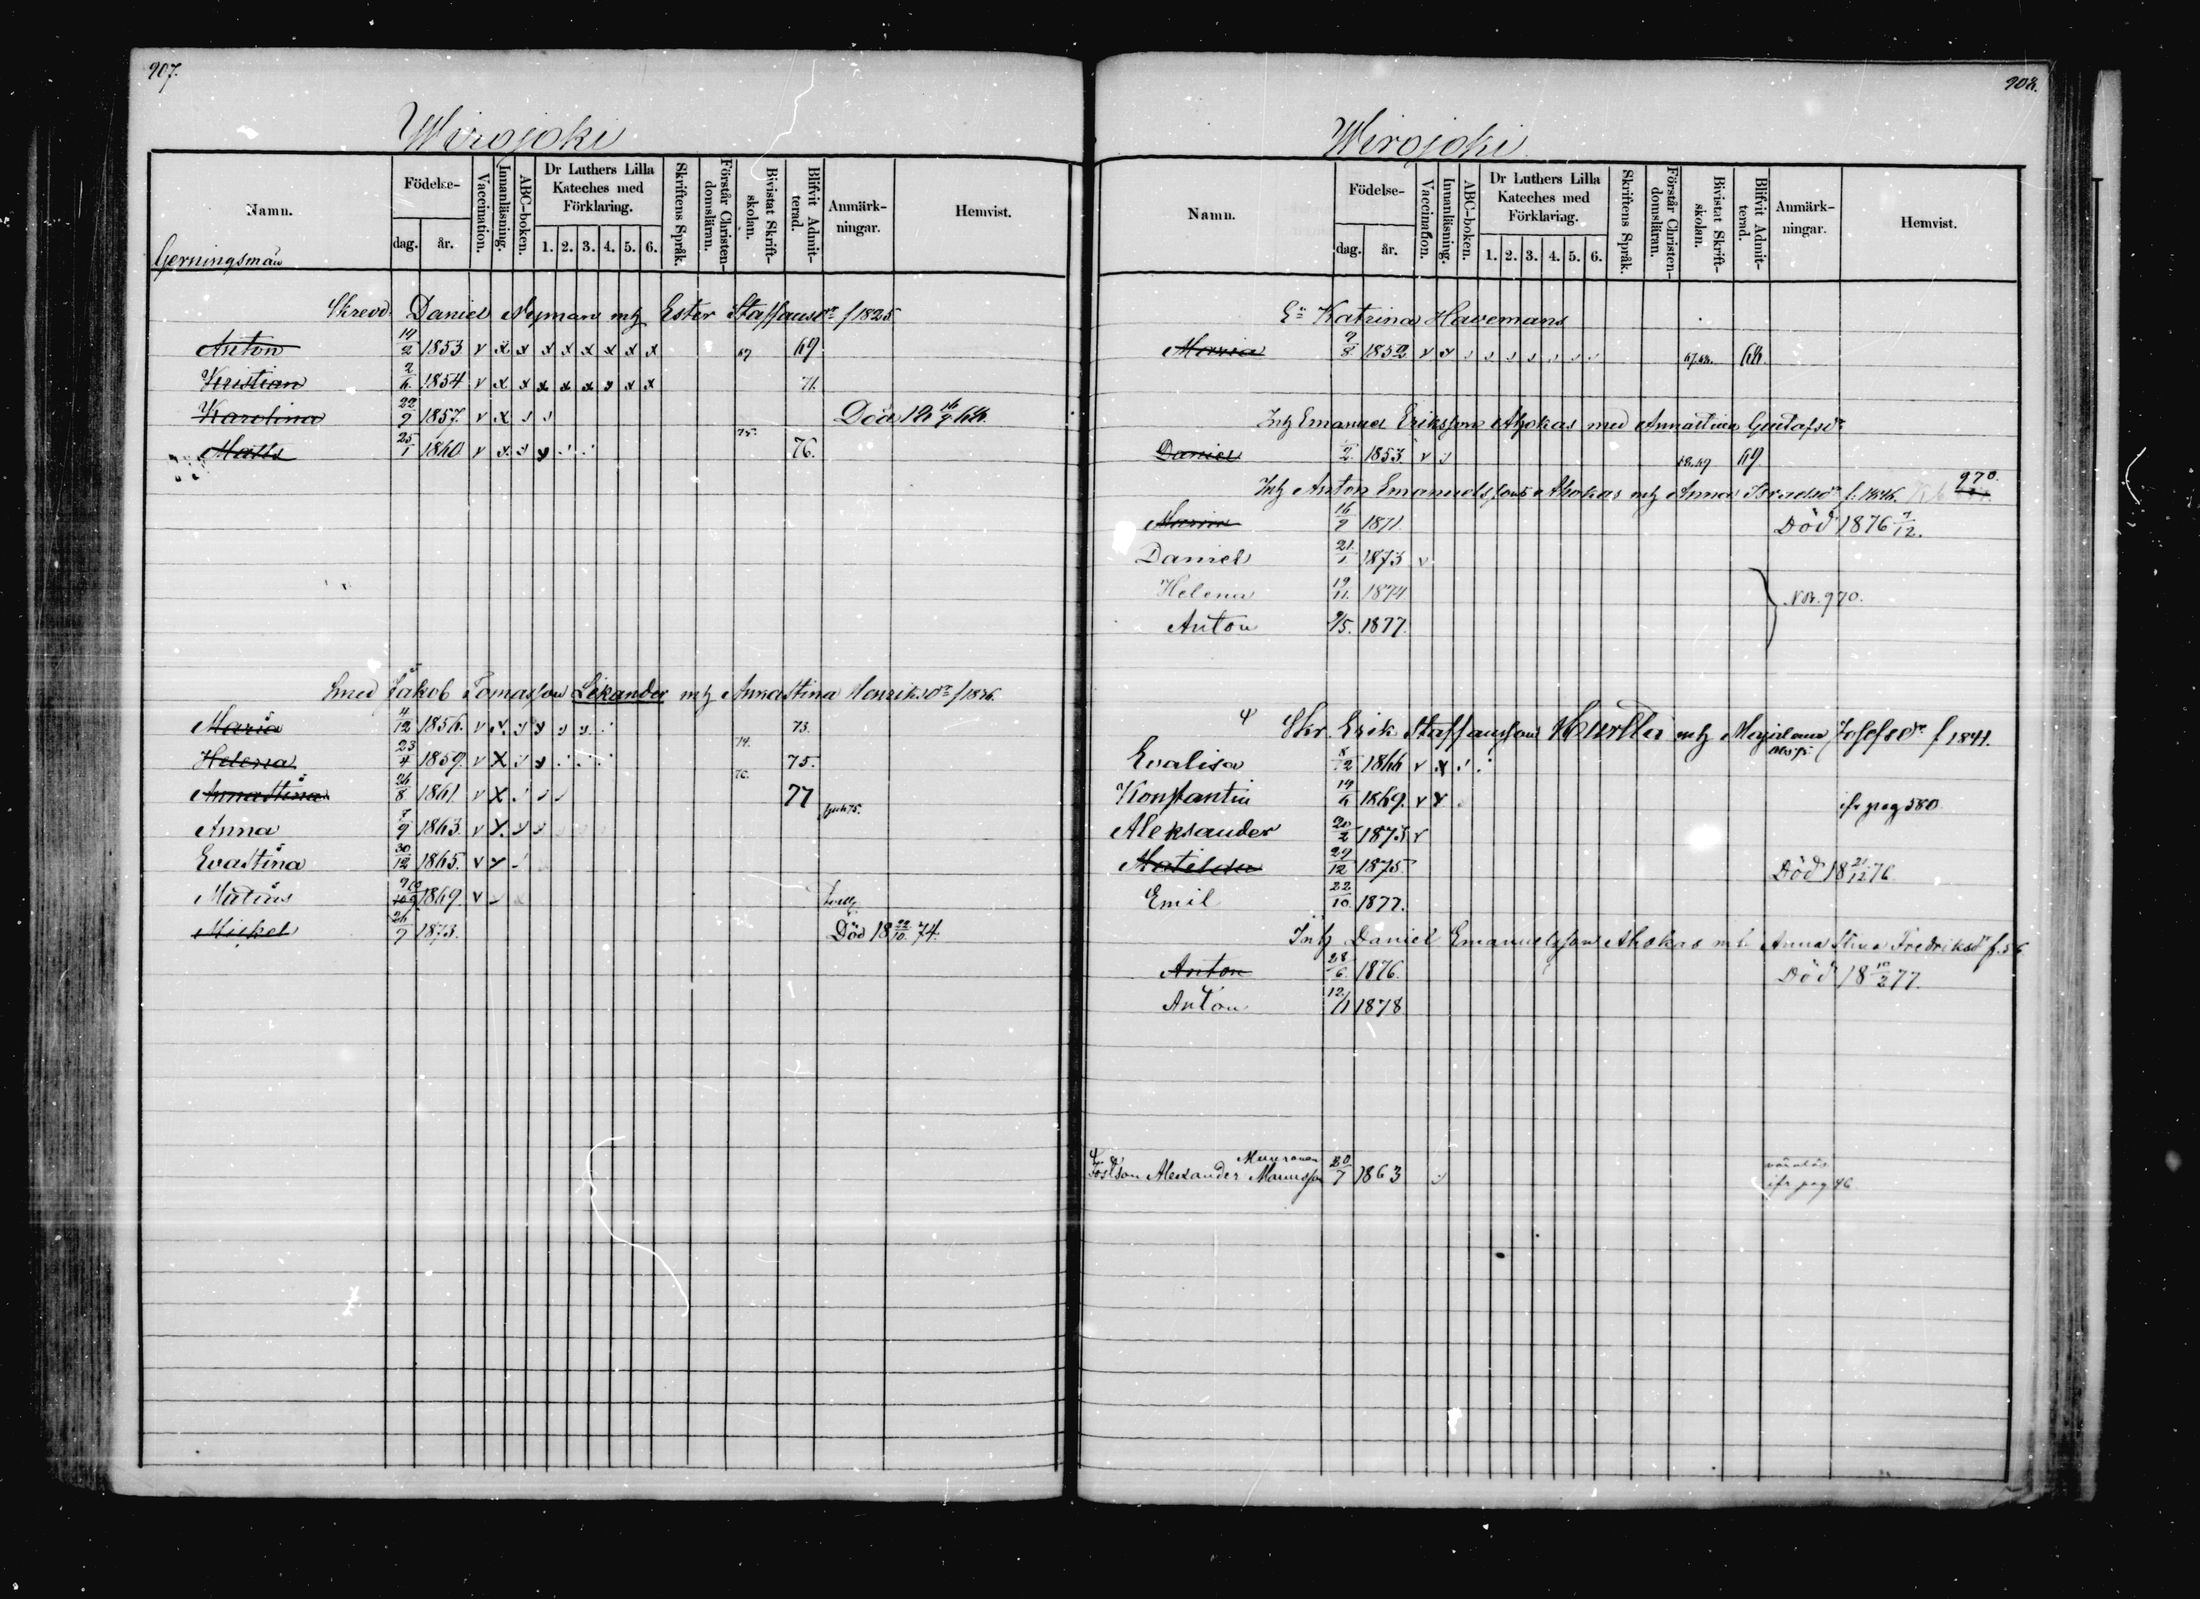 907.
Wirojoki
Namn. Födelse- dag. år. Vaccination. Innanläsning. ABC-boken. Dr Luthers Lilla Kateches med Förklaring. 1. 2. 3. 4. 5. 6. Skriftens Språk. Förstår Christendomsläran. Bivistat Skriftskolan. Blifvit Admitterad. Anmärkningar. Hemvist.
Gerningsmän
Daniel Nyman mtz Ester Staffansdr f 1825
Anton 19/2 1853 v x x x x x x x x 69 69
Kristian 2/6 1854 v x x x x x x x x 71.
Karolina 22/9 1857. v x Död 18 16/9 68.
Matts 25/1 1860 v x 75. 76.
Smed Jakob Tomasson Likander mtz Annastina Henriksdr f 1826.
Maria 4/12 1856. v x 73.
Helena 23/4 1859. v x 74. 75.
Annastina 26/8 1861. v x 76. 77
Anna 8/9 1863. v x
Evastina 30/12 1865. v
Matius 1869. v
Mickel 26/9 1873. Död 18 22/10 74.
908.
Wirojoki
Namn. Födelse- dag. år. Vaccination. Innanläsning. ABC-boken. Dr Luthers Lilla Kateches med Förklaring. 1. 2. 3. 4. 5. 6. Skriftens Språk. Förstår Christendomsläran. Bivistat Skriftskolan. Blifvit Admitterad. Anmärkningar. Hemvist.
Katrina Havemans
Maria 9/8 1852 v 67.68. 68.
Intz Emanuel Eriksson Ahokas med Annastina Gustafsdr
Daniel 1853 v 68.69 69
Intz Anton Emanuelsson Ahokas mtz Anna f. 1846. 970.
Maria 16/9 1871. Död 1876 7/12.
Daniel 21/1 1873 v
Helena 19/11. 1874
Anton 9/5. 1877. 970.
Skr Erik Staffansson Hurtti mtz Majalena Josefsdr f 1841.
Evalisa 8/12 1866 v x
Konstantin 19/6 1869. v v ifr pag 580
Aleksander 20/2 1873 v
Matilda 29/12 1875. Död 18 21/12 76.
Emil 22/10 1877.
Intz Daniel Emanuelsson Ahokas mtz Anna Stina Fredriksdr f. 56
Anton 28/6. 1876. Död 18 10/2 77.
Anton 12/11 1878
Muuronen
Fostson Alexander Mannsson 20/7 1863
värnlös
ifr pag 46